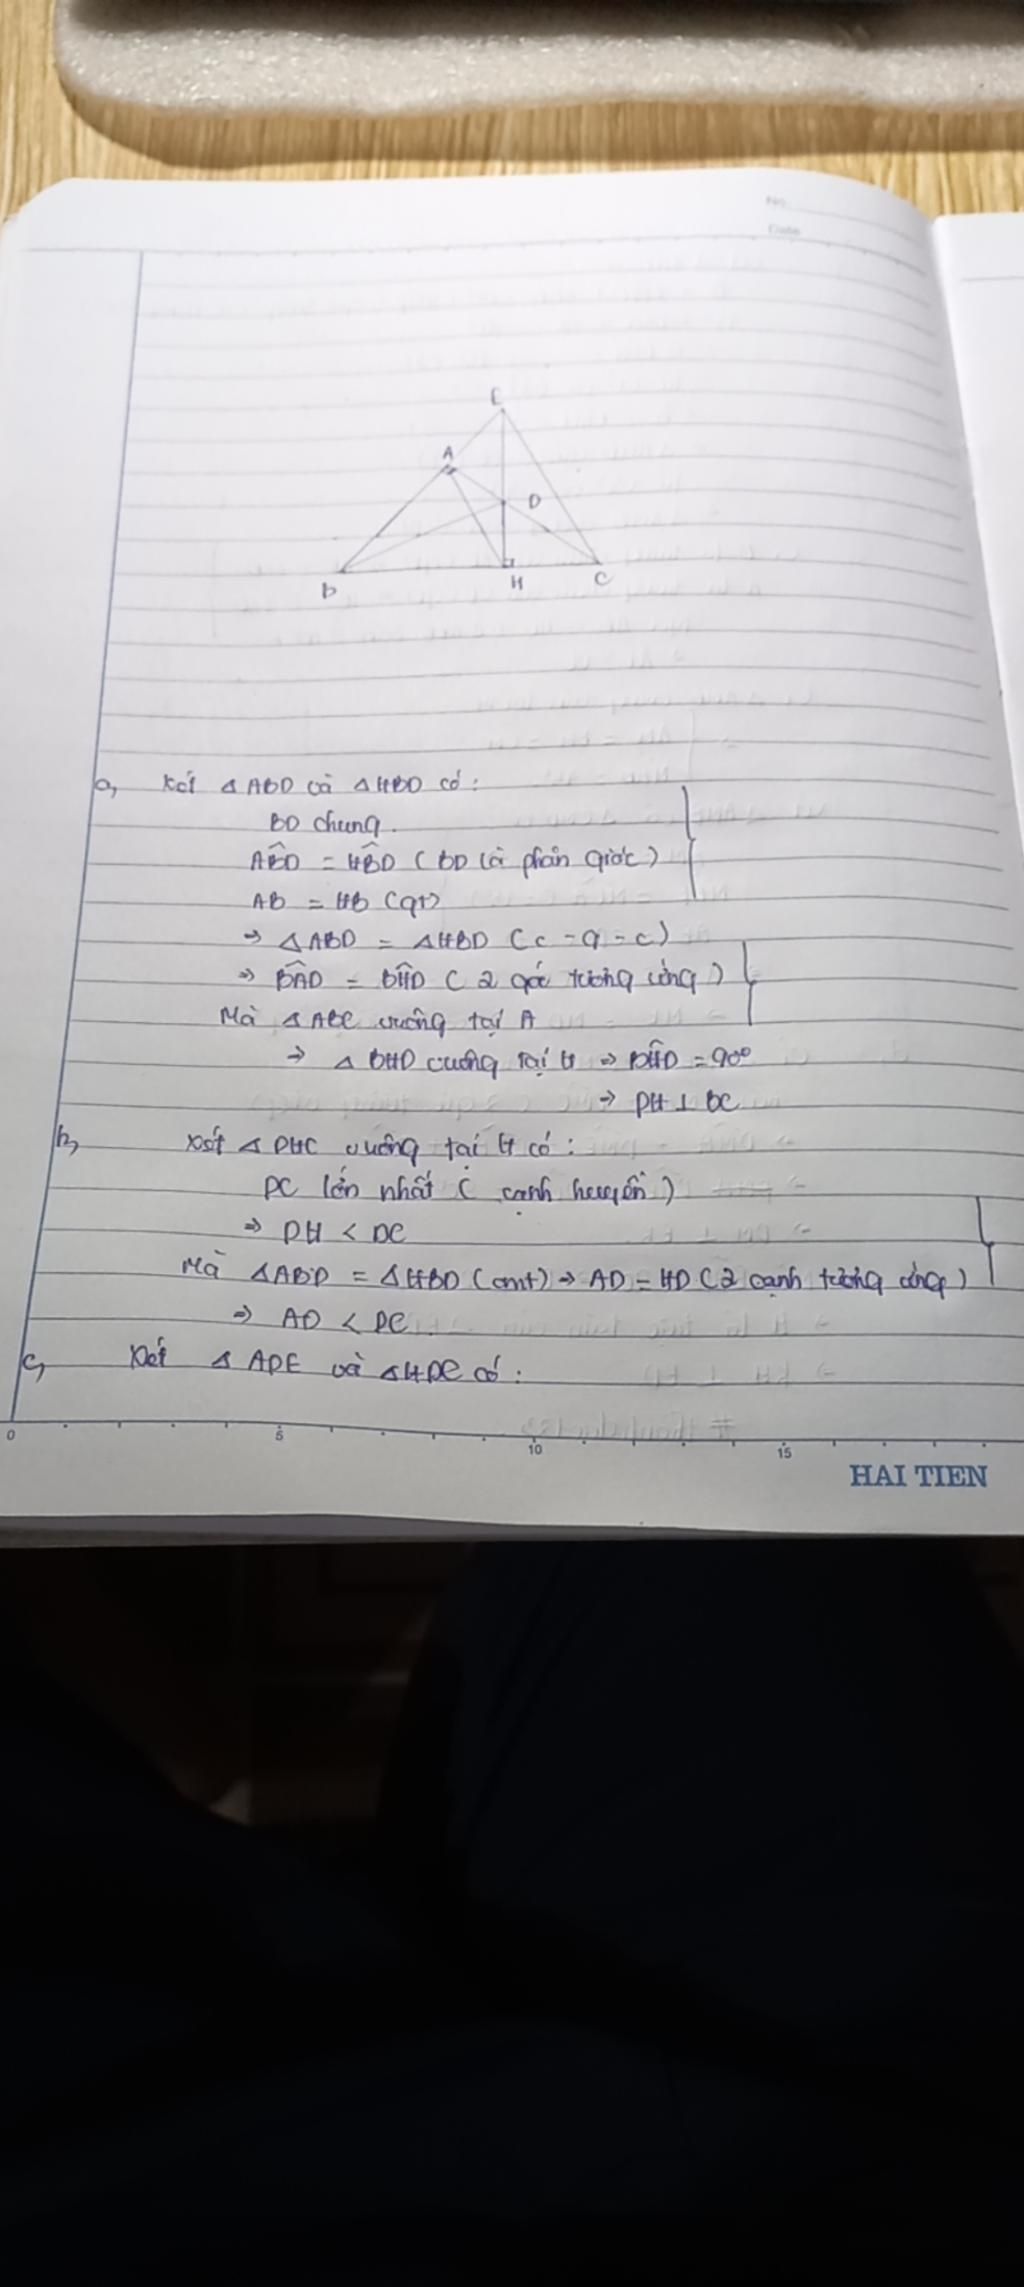 No.
Date
E
A
D
B
H
C
a, Xét △ABD và △HBD có:
BD chung.
ABD = HBD (BD là phân giác)
AB = HB (gt)
⇒ △ABD = △HBD (c - g - c)
⇒ BAD = BHD (2 góc tương ứng)
Mà △ABC vuông tại A
⇒ △BHD vuông tại H ⇒ BHD = 90°
⇒ DH ⊥ BC
b, Xét △DHC vuông tại H có:
DC lớn nhất (cạnh huyền)
⇒ DH < DC
Mà △ABD = △HBD (cmt) ⇒ AD = HD (2 cạnh tương ứng)
⇒ AD < DC.
c, Xét △ADE và △HDC có:
0 5 10 15
HAI TIEN